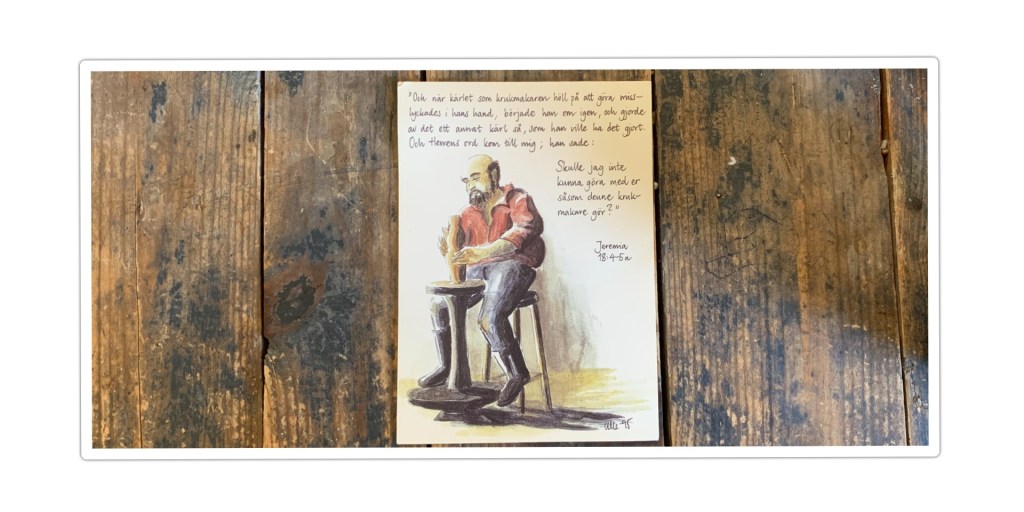 "Och när kärlet som krukmakaren höll på att göra miss-
lyckades i hans hand, började han om igen, och gjorde
av det ett annat kärl så, som han ville ha det gjort.
Och Herrens ord kom till mig; han sade:
Skulle jag inte
kunna göra med er
såsom denne kruk-
makare gör?"
Jeremia
18:4-6a
-95